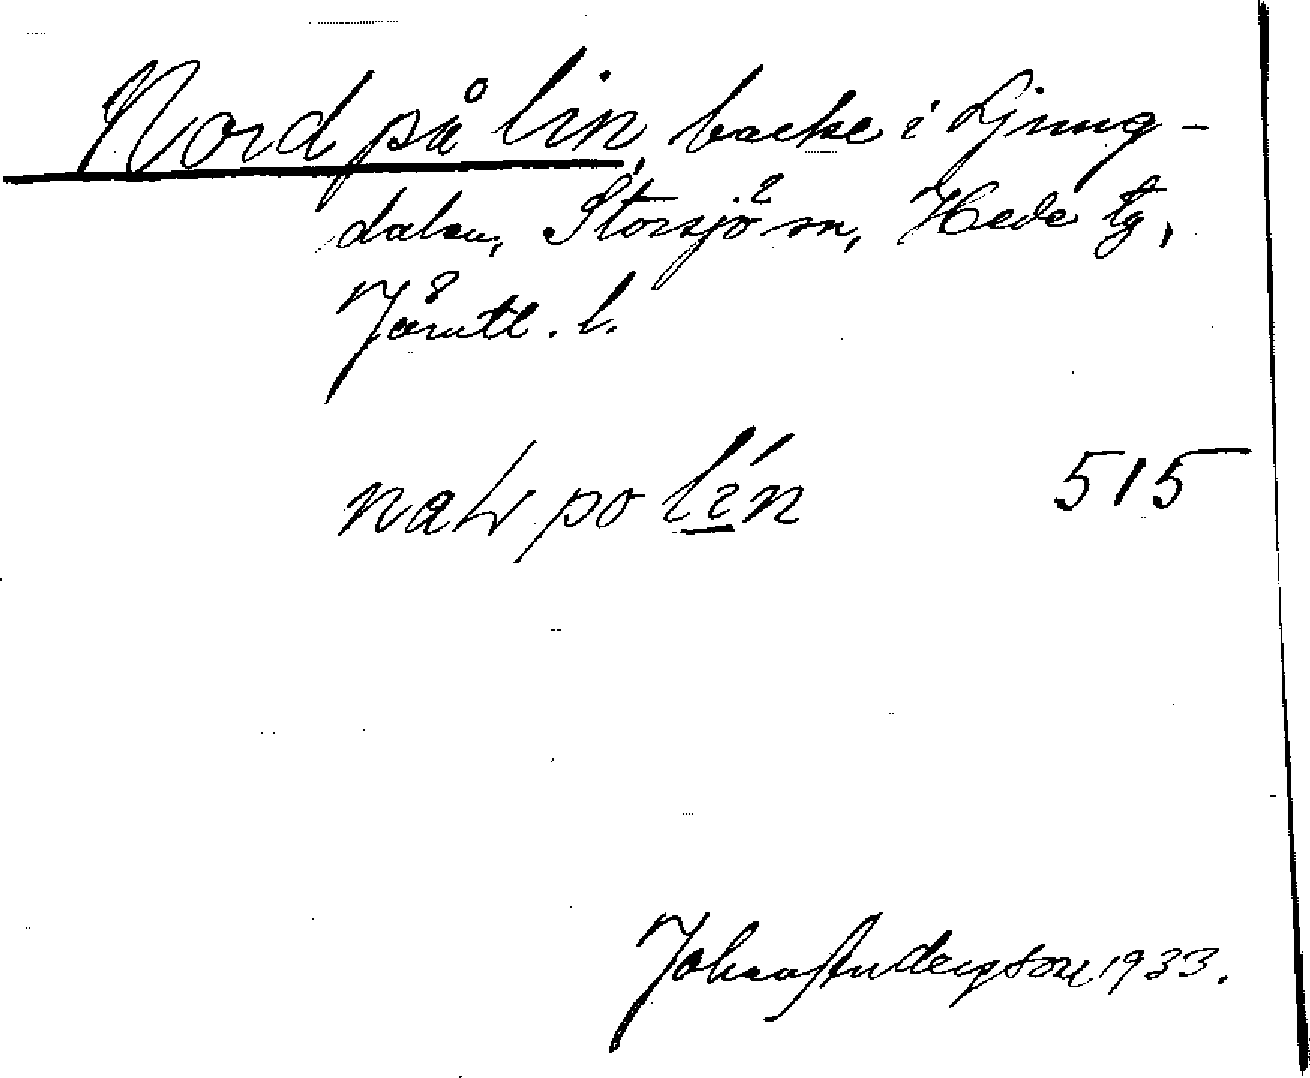 Nord på lin, backe i Ljung-
dalen, Storsjö sn, Hede tg,
Jämtl. l.
po lin 515
Johan Anderson 1933.